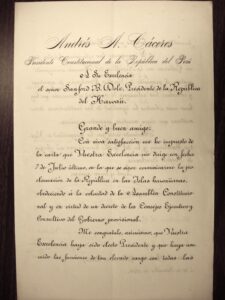 Andrés A. Cáceres
Presidente Constitucional de la República del Perú
A Su Excelencia
el señor Sanford B. Dole, Presidente de la República
del Hawaii.
Grande y buen amigo:
Con viva satisfacción me he impuesto de
la carta que Vuestra Excelencia me dirige con fecha
7 de Julio último, en la que se sirve comunicarme la pro-
clamación de la República en las Islas hawaiianas,
obedeciendo á la voluntad de la Asamblea Constitucio-
nal y en virtud de un decreto de los Consejos Ejecutivo y
Consultivo del Gobierno provisional.
Me congratulo, asimismo, que Vuestra
Excelencia haya sido electo Presidente y que haya asu-
mido las funciones de tan elevado cargo con todas las